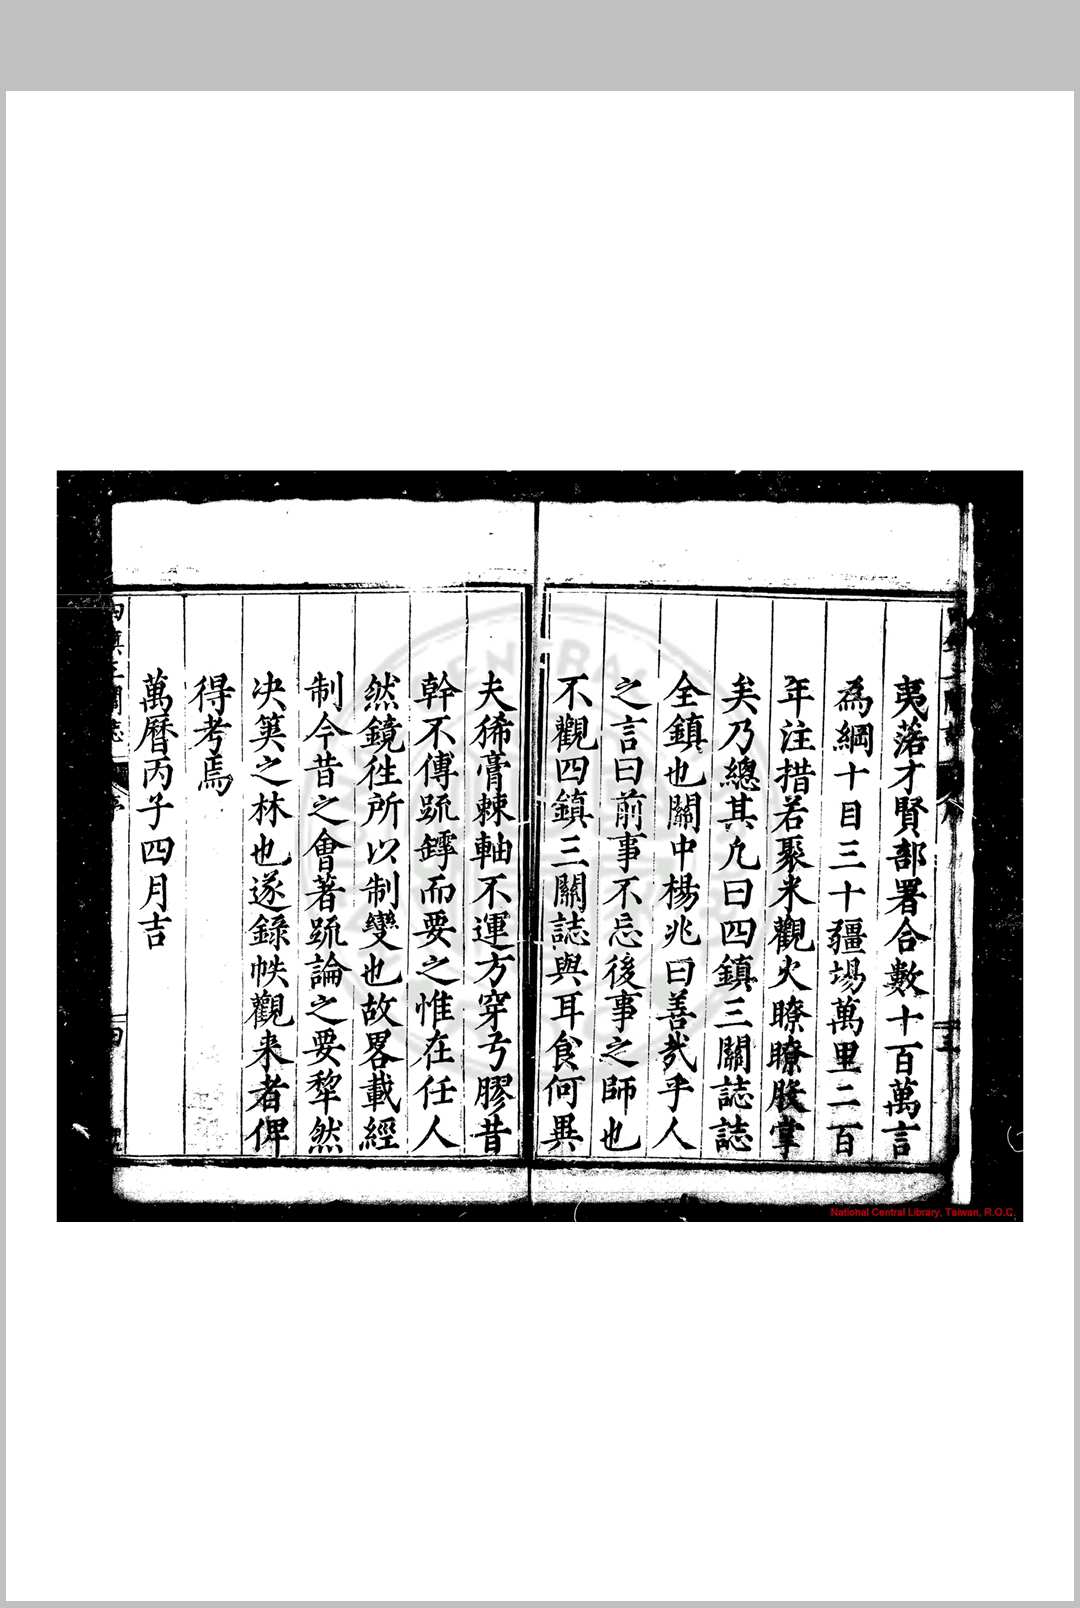 夷落才賢部署合數十百萬言
為綱十目三十疆埸萬里二百
年注措若聚米觀火瞭瞭股掌
矣乃總其凢曰四鎮三關誌誌
全鎮也關中楊兆曰善㦲乎人
之言曰前事不忘後事之師也
不觀四鎮三關誌與耳食何異
夫豨膏棘軸不運方穿弓膠昔
幹不傅䟽罅而要之惟在任人
然鏡徃所以制變也故畧載經
制今昔之會著䟽論之要犂然
决筴之林也遂錄帙觀来者俾
得考焉
萬曆丙子四月吉
四鎮三關誌
序
四
三
National Central Library, Taiwan, R.O.C.